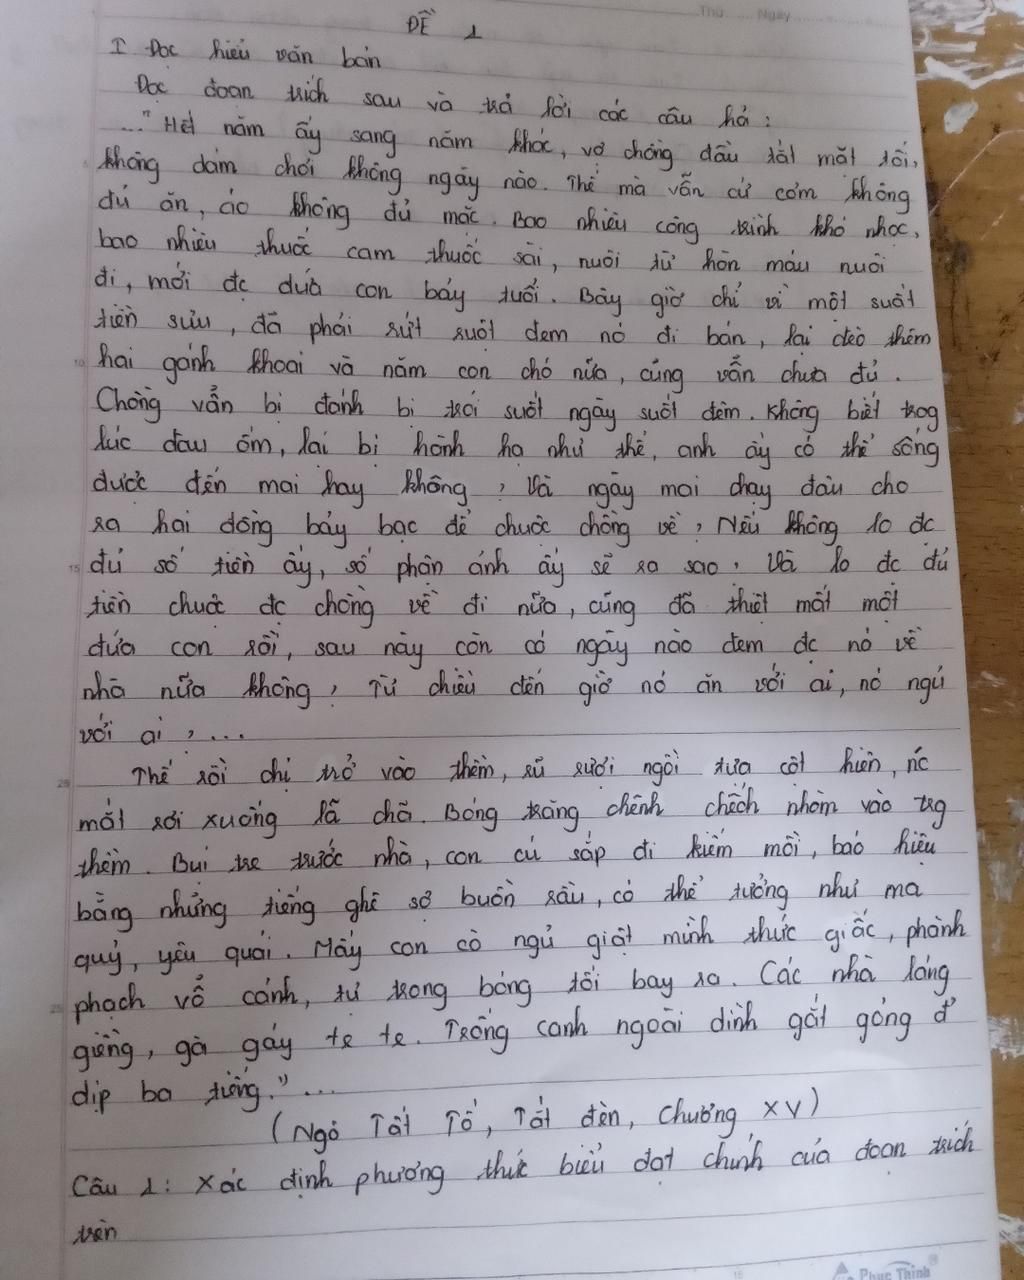 Thứ .... Ngày ..........
ĐỀ 1
I Đọc hiểu văn bản
Đọc đoạn trích sau và trả lời các câu hả :
..." Hết năm ấy sang năm khác, vợ chồng đầu tắt mặt tối,
không dám chơi không ngày nào. Thế mà vẫn cứ cơm không
đủ ăn, áo không đủ mặc. Bao nhiêu công trình khó nhọc,
bao nhiêu thuốc cam thuốc sài, nuôi từ hòn máu nuôi
đi, mới đc đứa con bảy tuổi. Bây giờ chỉ vì một suất
tiền sưu, đã phải rứt ruột đem nó đi bán, lại đèo thêm
hai gánh khoai và năm con chó nữa, cũng vẫn chưa đủ.
Chồng vẫn bị đánh bị trói suốt ngày suốt đêm. Không biết trog
lúc đau ốm, lại bị hành hạ như thế, anh ấy có thể sống
được đến mai hay không ? Và ngày mai chạy đâu cho
ra hai đồng bảy bạc để chuộc chồng về ? Nếu không lo đc
đủ số tiền ấy, số phận ảnh ấy sẽ ra sao ? Và lo đc đủ
tiền chuộc đc chồng về đi nữa, cũng đã thiệt mất một
đứa con rồi, sau này còn có ngày nào đem đc nó về
nhà nữa không ? Từ chiều đến giờ nó ăn với ai, nó ngủ
với ai ? ...
Thế rồi chị trở vào thềm, rũ rượi ngồi tựa cột hiên, nc
mắt rơi xuống lã chã. Bóng trăng chênh chếch nhòm vào trg
thềm. Bụi tre trước nhà, con cú sắp đi kiếm mồi, báo hiệu
bằng những tiếng ghê sợ buồn rầu, có thể tưởng như ma
quỷ, yêu quái. Mấy con cò ngủ giật mình thức giấc, phành
phạch vỗ cánh, từ trong bóng tối bay ra. Các nhà láng
giềng, gà gáy te te. Trống canh ngoài đình gắt gỏng đ
dịp ba tiếng." ...
( Ngô Tất Tố, Tắt đèn, Chương XV)
Câu 1: Xác định phương thức biểu đạt chính của đoạn trích
trên
Phuc Thinh